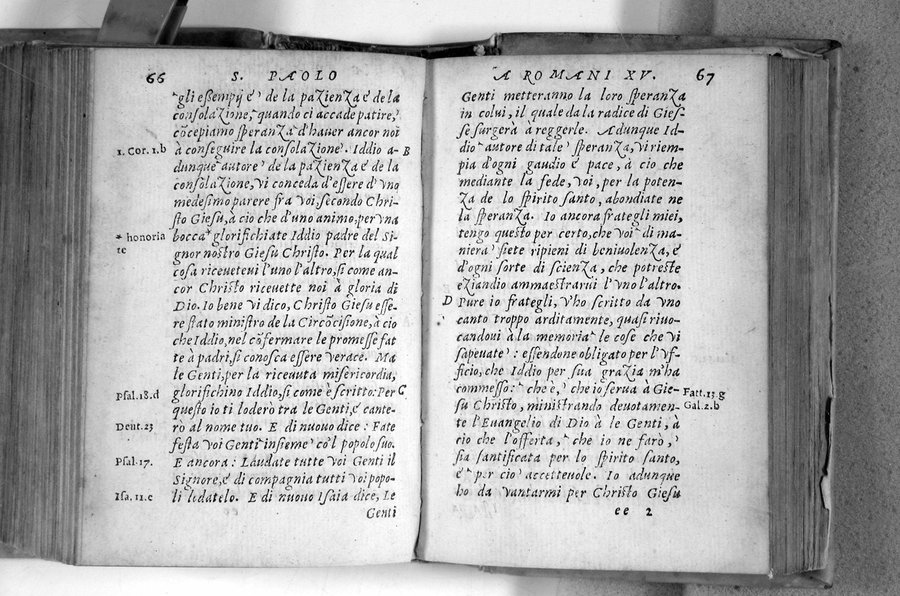 66 S. PAOLO
gli eßempij e' de la paZienZa e' de la
consolaZione, quando ci accade patire,
cõcepiamo speranZa d'hauer ancor noi
1. Cor. 1.b à conseguire la consolaZione. Iddio a- B
dunque autore de la paZienZa e' de la
consolaZione, vi conceda d'essere d'vno
medesimo parere fra voi, secondo Chri-
sto Giesu, à cio che d'uno animo, per vna
* honoria bocca * glorifichiate Iddio padre del Si-
te gnor nostro Giesu Christo. Per la qual
cosa riceuetevi l'uno l'altro, si come an-
cor Christo riceuette noi à gloria di
Dio. Io bene vi dico, Christo Giesu esse-
re stato ministro de la Circõcisione, à cio
che Iddio, nel cõfermare le promesse fat
te à padri, si conosca essere verace. Ma
le Genti, per la riceuuta misericordia,
Psal. 18.d glorifichino Iddio, si come è scritto: Per C
questo io ti loderò tra le Genti, e cante-
Deut. 23 rò al nome tuo. E di nuouo dice: Fate
festa voi Genti insieme cò'l popolo suo.
Psal. 17. E ancora: Laudate tutte voi Genti il
Signore, e' di compagnia tutti voi popo-
Isa. 11.c li lodatelo. E di nuouo Isaia dice, Le
Genti
A ROMANI XV. 67
Genti metteranno la loro speranZa
in colui, il quale da la radice di Gies-
se surgerà à reggerle. Adunque Id-
dio autore di tale speranZa, vi riem-
pia d'ogni gaudio e pace, à cio che
mediante la fede, voi, per la poten-
Za de lo spirito santo, abondiate ne
la speranZa. Io ancora frategli miei,
tengo questo per certo, che voi di ma-
niera siete ripieni di beniuolenZa, e'
d'ogni sorte di scienZa, che potreste
eZiandio ammaestrarui l'vno l'altro.
D Pure io frategli, v'ho scritto da vno
canto troppo arditamente, quasi riuo-
candoui à la memoria le cose che vi
sapeuate: essendone obligato per l'vf-
ficio, che Iddio per sua grazia m'ha
commesso: che è, che io serua à Gie- Fatt. 13 g
su Christo, ministrando deuotamen- Gal. 2.b
te l'Euangelio di Dio à le Genti, à
cio che l'offerta, che io ne farò,
sia santificata per lo spirito santo,
e' per cio accetteuole. Io adunque
ho da vantarmi per Christo Giesu
ee 2